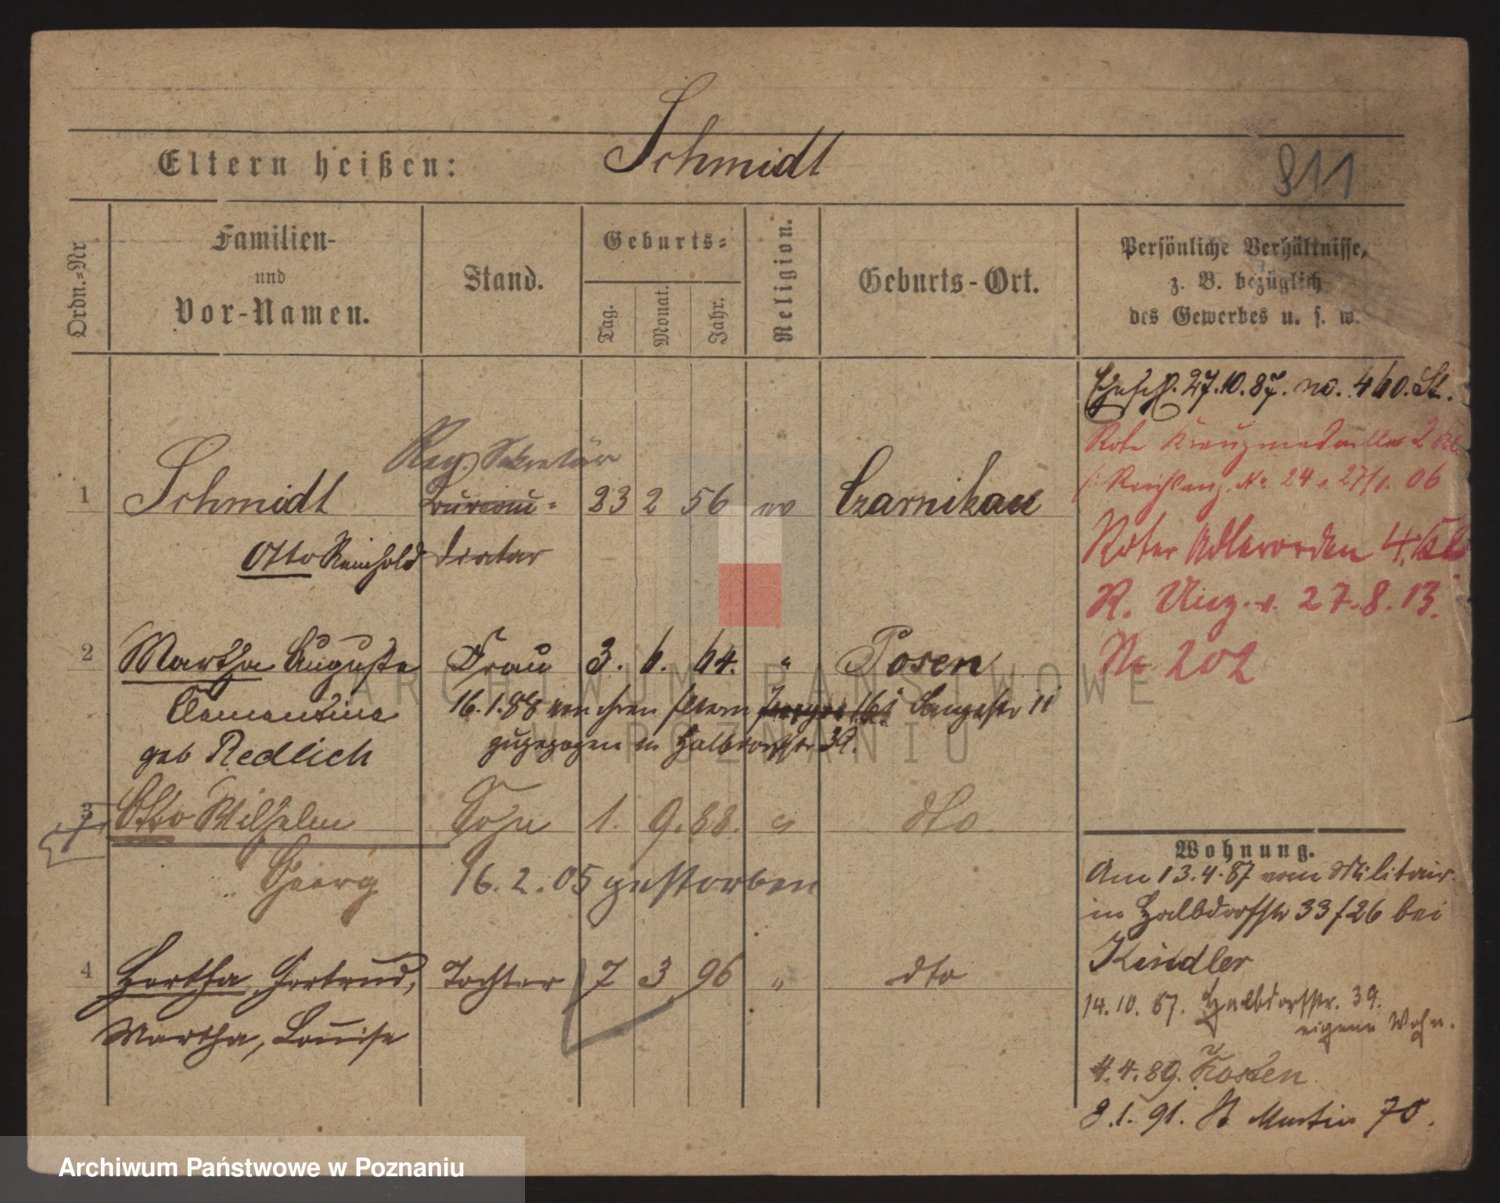 Schmidt
Eltern heißen:
911
Ordn.-Nr
Familien-
und
Vor-Namen.
Stand.
Geburts-
Tag.
Monat.
Jahr.
Religion.
Geburts-Ort.
Persönliche Verhältnisse,
z. B. bezüglich
des Gewerbes u. s. w.
Ehesch. 27.10.87. no. 460. St.
Rote Kreuzmedaille 2 Kl
Reichsanz. No 24 v. 27/1. 06
Roter Adlerorden 4. Kl.
R. Anz. v. 27.8.13.
No 202
Reg. Sekretär
1 Schmidt Bureau- 23 2 56 ev Czarnikau
Otto Reinhold diätar
2 Martha Auguste Frau 3. 6. 64. " Posen
Clementine 16.1.88 von ihren Eltern 16 Langestr 11
geb Redlich zugezogen in Halbdorfstr 39.
3 Otto Wilhelm Sohn 1. 9. 88. " dto.
Georg 16.2.05 gestorben
4 Hertha, Gertrud, Tochter 7 3 96 " dto
Martha, Louise
Wohnung.
Am 13.4.87 vom Militair
in Halbdorfstr 33/26 bei
Kindler
14.10.87. Halbdorfstr. 39.
eigene Wohn.
4.4.89. Kosten
8.1.91. St Martin 70.
ARCHIWUM PAŃSTWOWE
W POZNANIU
Archiwum Państwowe w Poznaniu